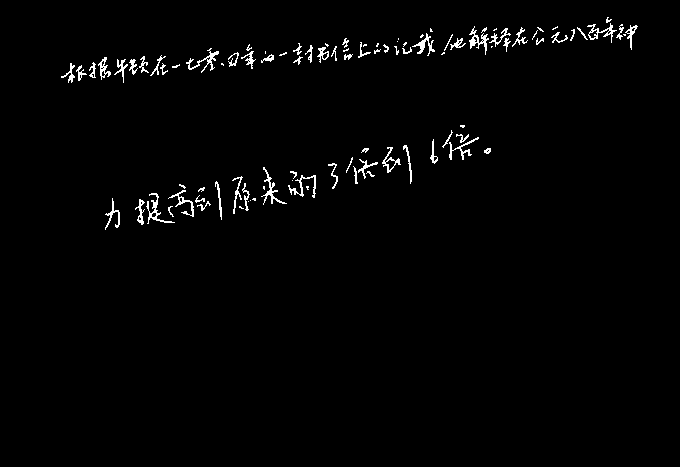 根据牛顿在一七零四年的一封书信上的记载,他解释在公元八百年神
力提高到原来的3倍到6倍。